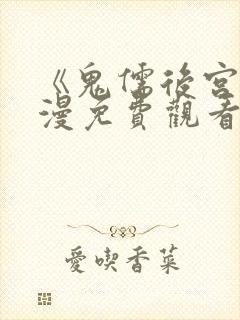 《鬼儒後宮
漫免費觀看
愛喫香菜